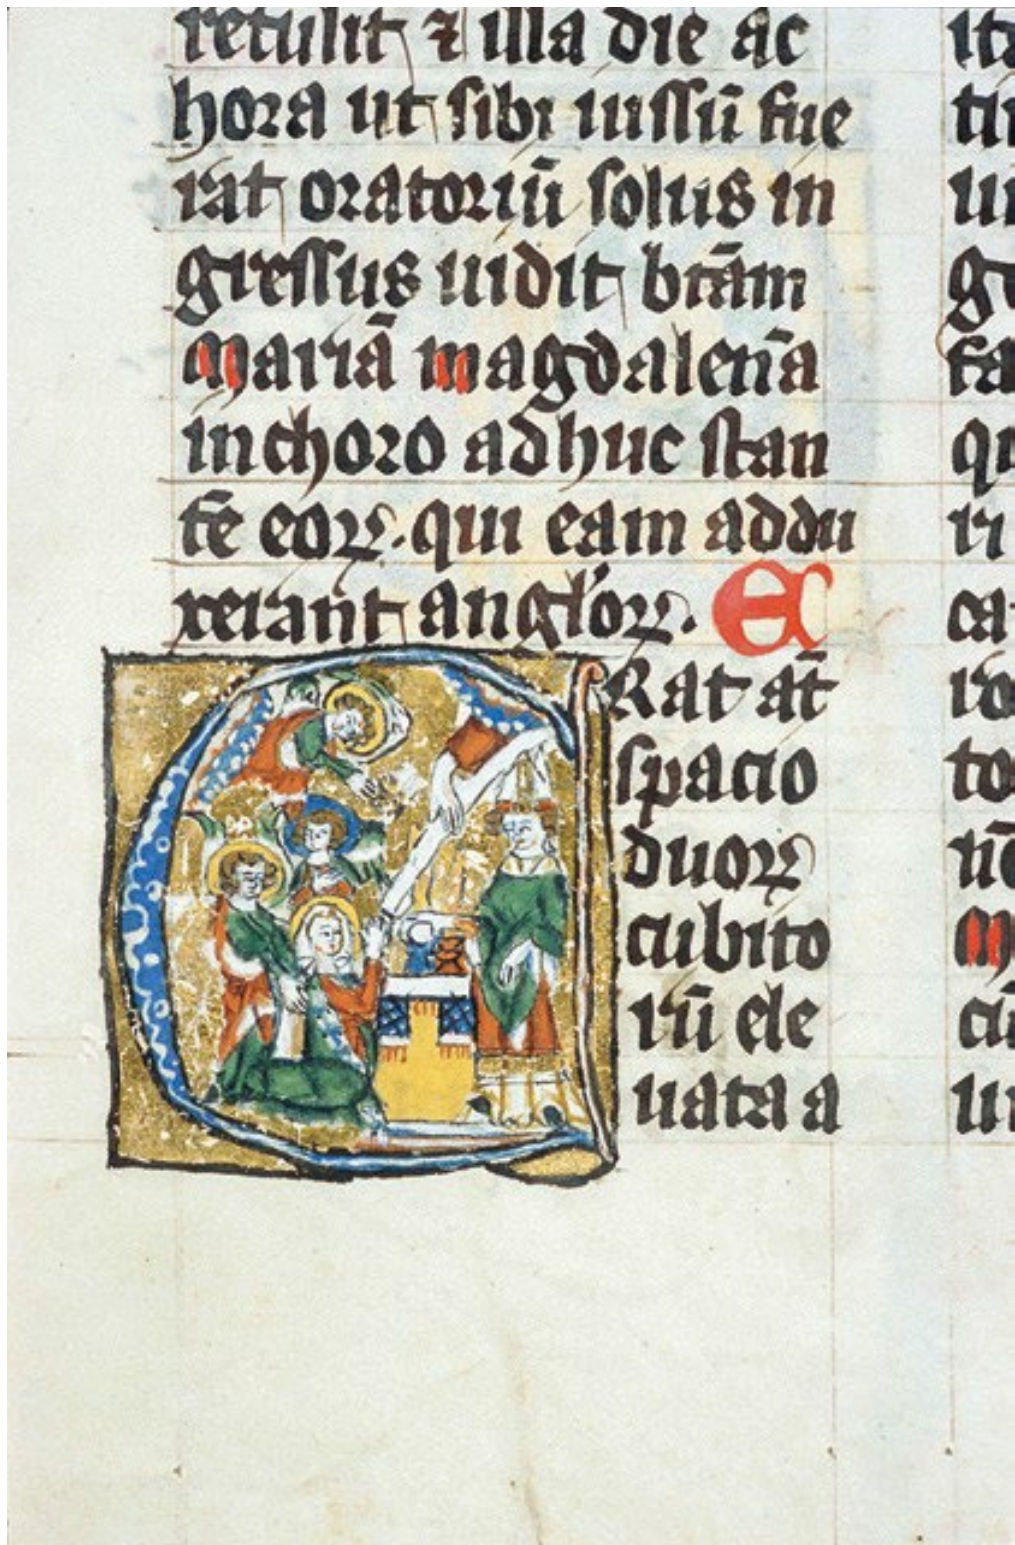 retulit ⁊ illa die ac
hora ut sibi iussū fue
rat oratoriū solus in
gressus uidit btām
Mariā magdalen̄a
in choro adhuc stan
tē eoꝝ. qui eam addu
xerant angl'oꝝ. E
Rat at̄
spacio
duoꝝ
cubito
rū ele
uata a
ita
ti
ui
ge
fa
qu
ri
ca
ro
to
nō
M
cū
ui